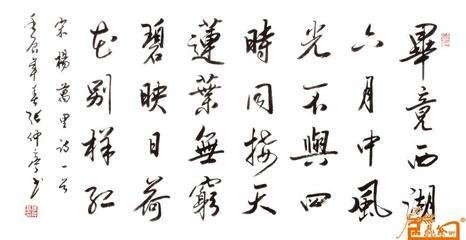 畢竟西湖
六月中風
光不與四
時同接天
蓮葉無窮
碧映日荷
花别樣红
宋楊萬里詩一首
壬辰年春张仲亭书